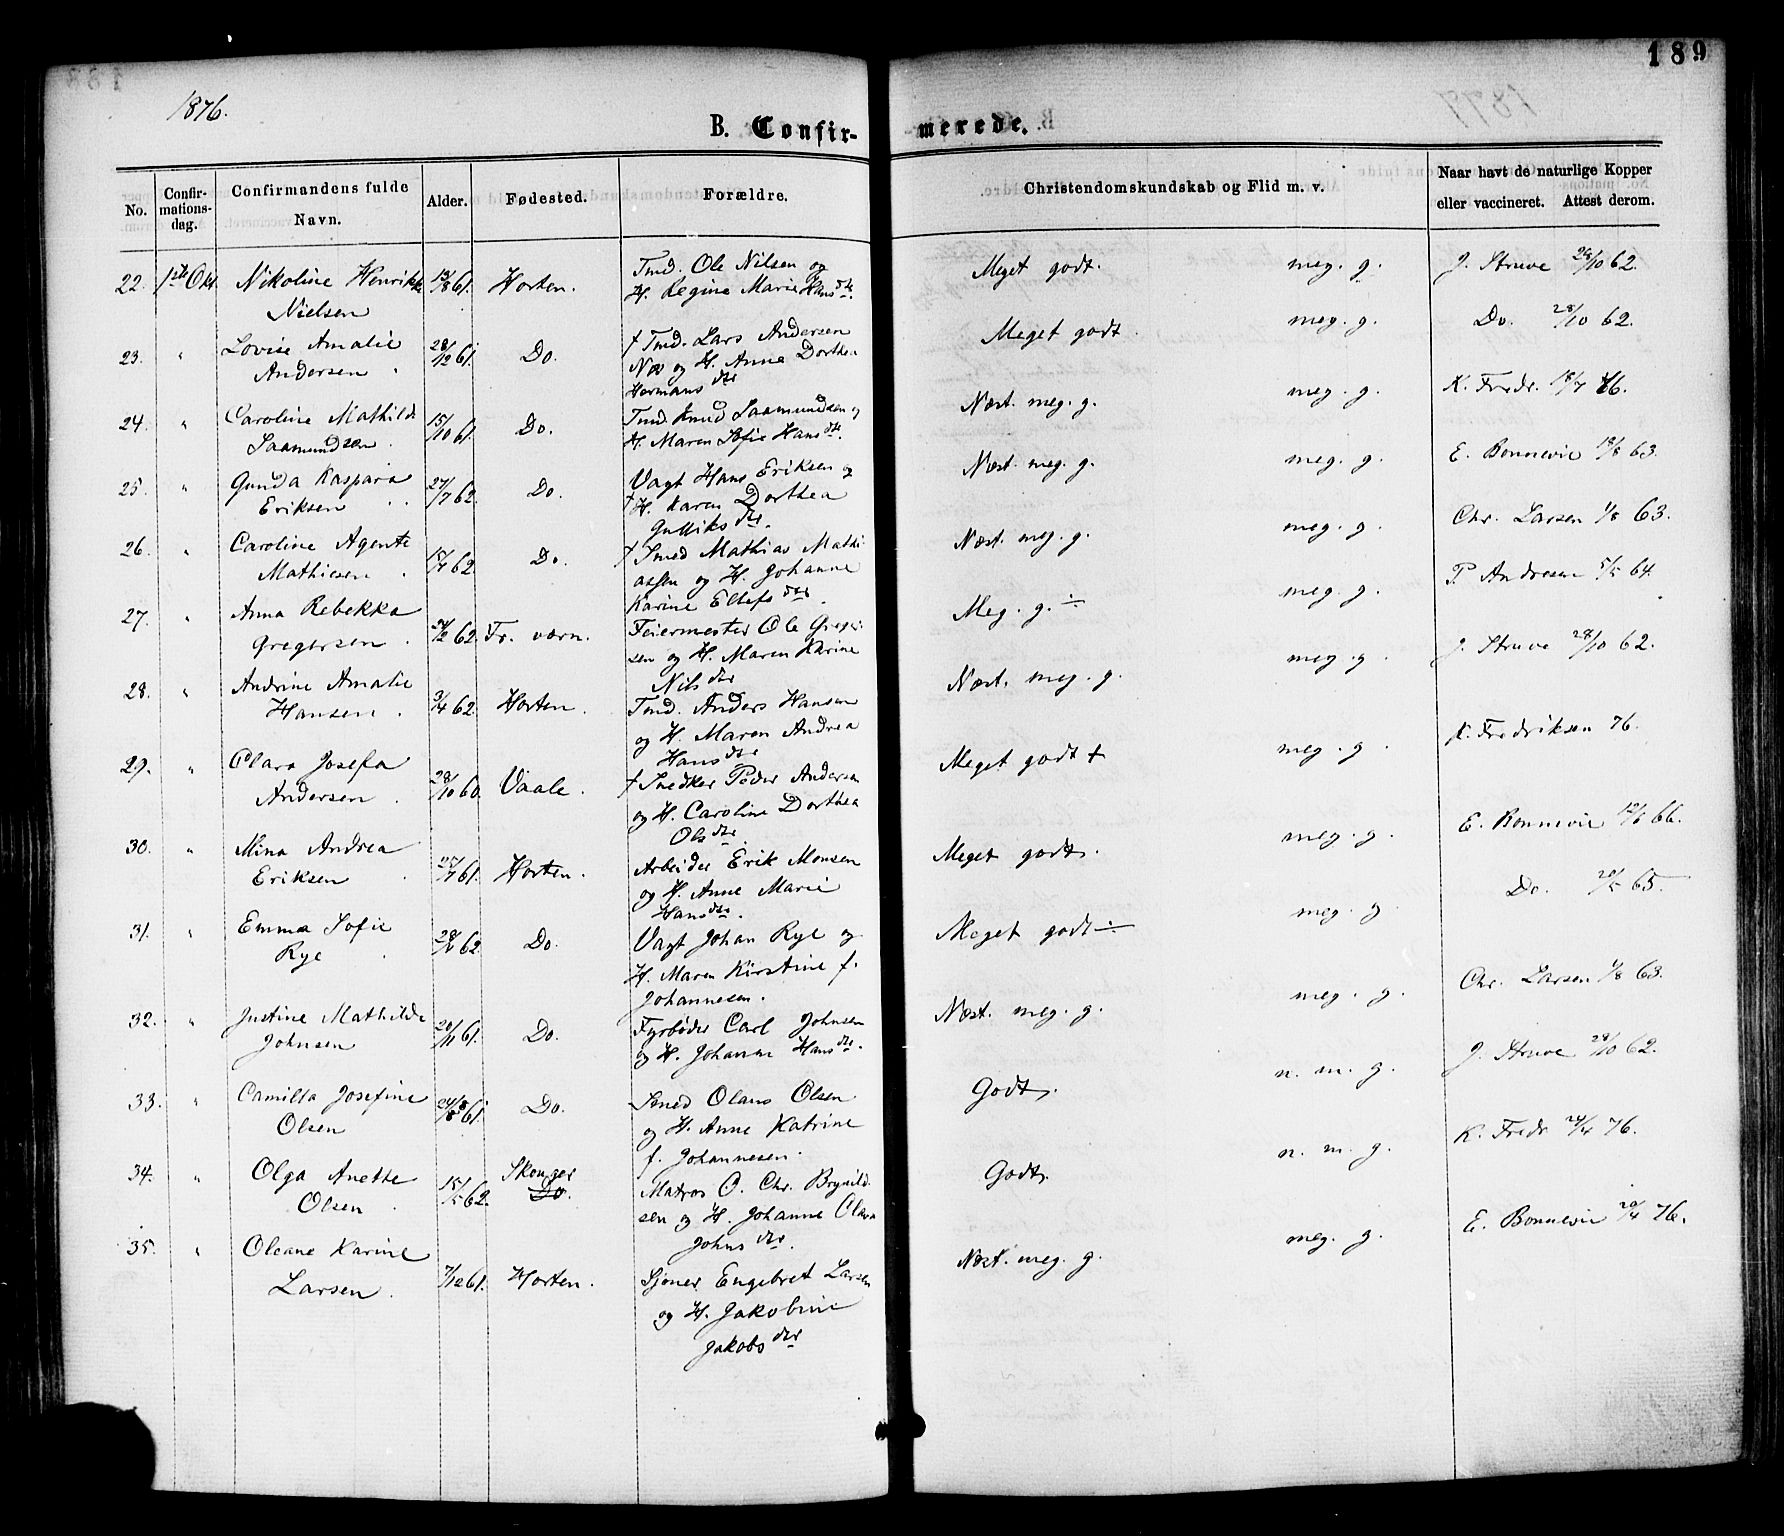 189
1876.
B. Confir-
merede.
No.
Confir-
mations-
dag.
Confirmandens fulde
Navn.
Alder.
Fødested.
Forældre.
Christendomskundskab og Flid m. v.
Naar havt de naturlige Kopper
eller vaccineret. Attest derom.
22. 1ste Okt. Nikoline Henrikke 13/8 61. Horten. Tmd. Ole Nilsen og
Nielsen H. Regine Marie Hansdtr.
Meget godt. meg. g. J. Struve 28/10 62.
23. " Lovise Amalie 28/12 61. Do. † Tmd. Lars Andersen
Andersen Næs og H. Anne Dorthea
Hermansdtr
Meget godt. meg. g. Do. 28/10 62.
24. " Caroline Mathilde 15/10 61. Do. Tmd. Knud Saamundsen og
Saamundsen H. Maren Sofie Hansdtr.
Næst. meg. g. meg. g. K. Fredr. 18/7 76.
25. " Gunda Kaspara 27/7 62. Do. Vagt Hans Eriksen og
Eriksen † H. Karen Dorthea
Gulliksdtr.
Næst. meg. g. meg. g. E. Bonnevie 18/8 63.
26. " Caroline Agente Do. † Smed Mathias Mathi-
Mathiesen assen og H. Johanne
Karine Ellefsdtr.
Næst. meg. g. meg. g. Chr. Larsen 1/8 63.
27. " Anna Rebekka 24/2 62. Fr. værn. Feiermester Ole Greger-
Gregersen sen og H. Maren Karine
Nilsdtr
Meg. g. ÷ meg. g. P. Andresen 5/5 64.
28. " Andrine Amalie 3/4 62. Horten. Tmd. Anders Hansen
Hansen og H. Maren Andrea
Hansdtr
Næst. meg. g. meg. g. J. Struve 28/10 62.
29. " Clara Josefa 28/10 60. Vaale. † Snedker Peder Andersen
Andersen og H. Caroline Dorthea
Olsdtr.
Meget godt + meg. g. K. Fredriksen 76.
30. " Mina Andrea 27/7 61. Horten. Arbeider Erik Monsen
Eriksen og H. Anne Marie
Hansdtr.
Meget godt. meg. g. E. Bonnevie 66.
31. " Emma Sofie 62. Do. Vagt Johan Rye og
Rye H. Maren Kirstine f.
Johannesen.
Meget godt ÷ meg. g Do. 20/5 65.
32. " Justine Mathilde 20/11 61. Do. Fyrbøder Carl Johnsen
Johnsen og H. Johanne Hansdtr.
Næst. meg. g. meg. g. Chr. Larsen 1/8 63.
33. " Camilla Josefine 24/8 61. Do. Smed Olaus Olsen
Olsen og H. Anne Katrine
f. Johannesen.
Godt. n. m. g. J. Struve 28/10 62.
34. " Olga Anette 15/5 62. Skouger Do. Matros O. Chr. Brynild-
Olsen sen og H. Johanne Olava
Johnsdtr.
Godt. n. m. g. K. Fredr 24/4 76.
35. " Oleane Karine 7/12 61. Horten. Sjømd. Engebret Larsen
Larsen. og H. Jakobine
Jakobsdtr
Næst. meg. g. meg. g. E. Bonnevie 20/4 76.